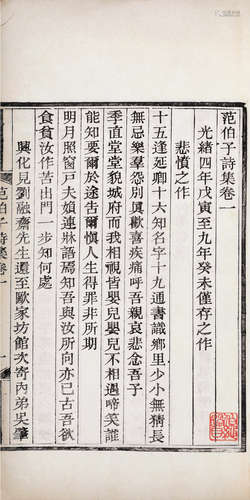 范伯子詩集卷一
光緒四年戊寅至九年癸未僅存之作
悲憤之作
十五逢延卿十六知名字十九通書識鄉里少小無猜長
無忌樂羣怨別眞歡喜疾痛呼吾親哀忿念吾子
季直堂堂貌城府而我相視皆嬰兒嬰兒不相遇啼笑誰
能知要爾於途古爾愼人生得罪非所期
明月照窗戶夫娘連牀語焉知吾與汝所向亦已古吾欲
食貧汝作苦出門一步知何處
興化見劉融齋先生還至歐家坊館次寄內弟吳肇
范伯子詩集 卷一